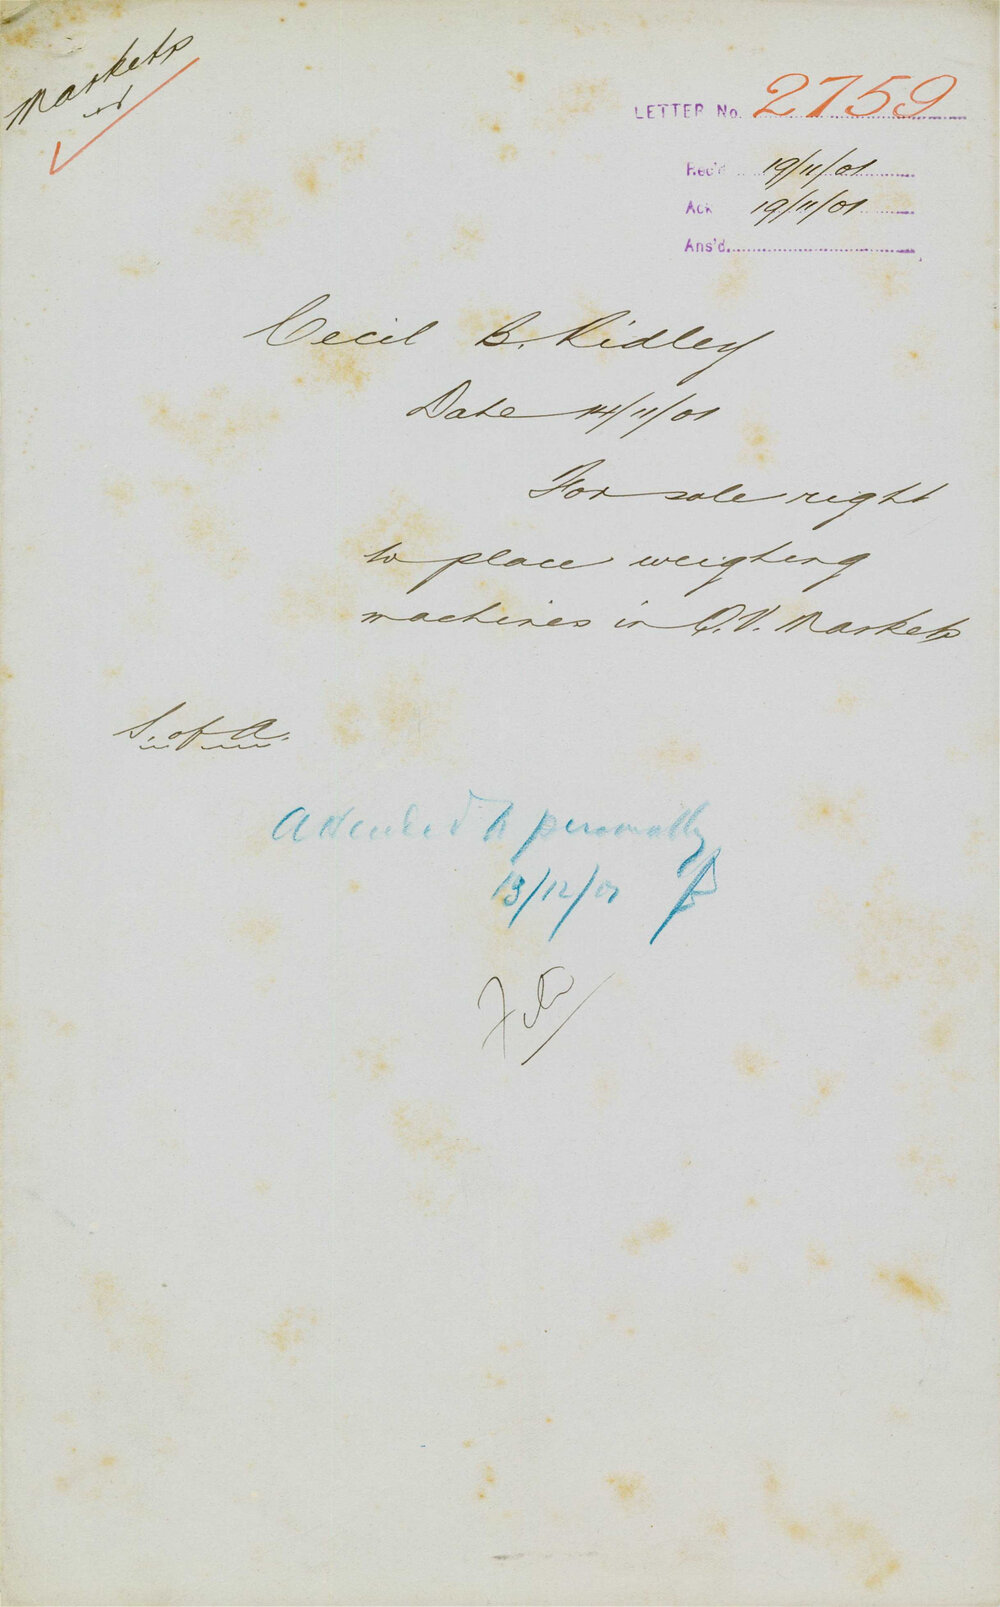 Markets
LETTER No. 2759
Rec'd 19/11/01
Ack 19/11/01
Ans'd.
Cecil B. Ridley
Date 14/11/01
For sole right
to place weighing
machines in Q.V. Markets
S. of A.
Attended to personally
13/12/01
File